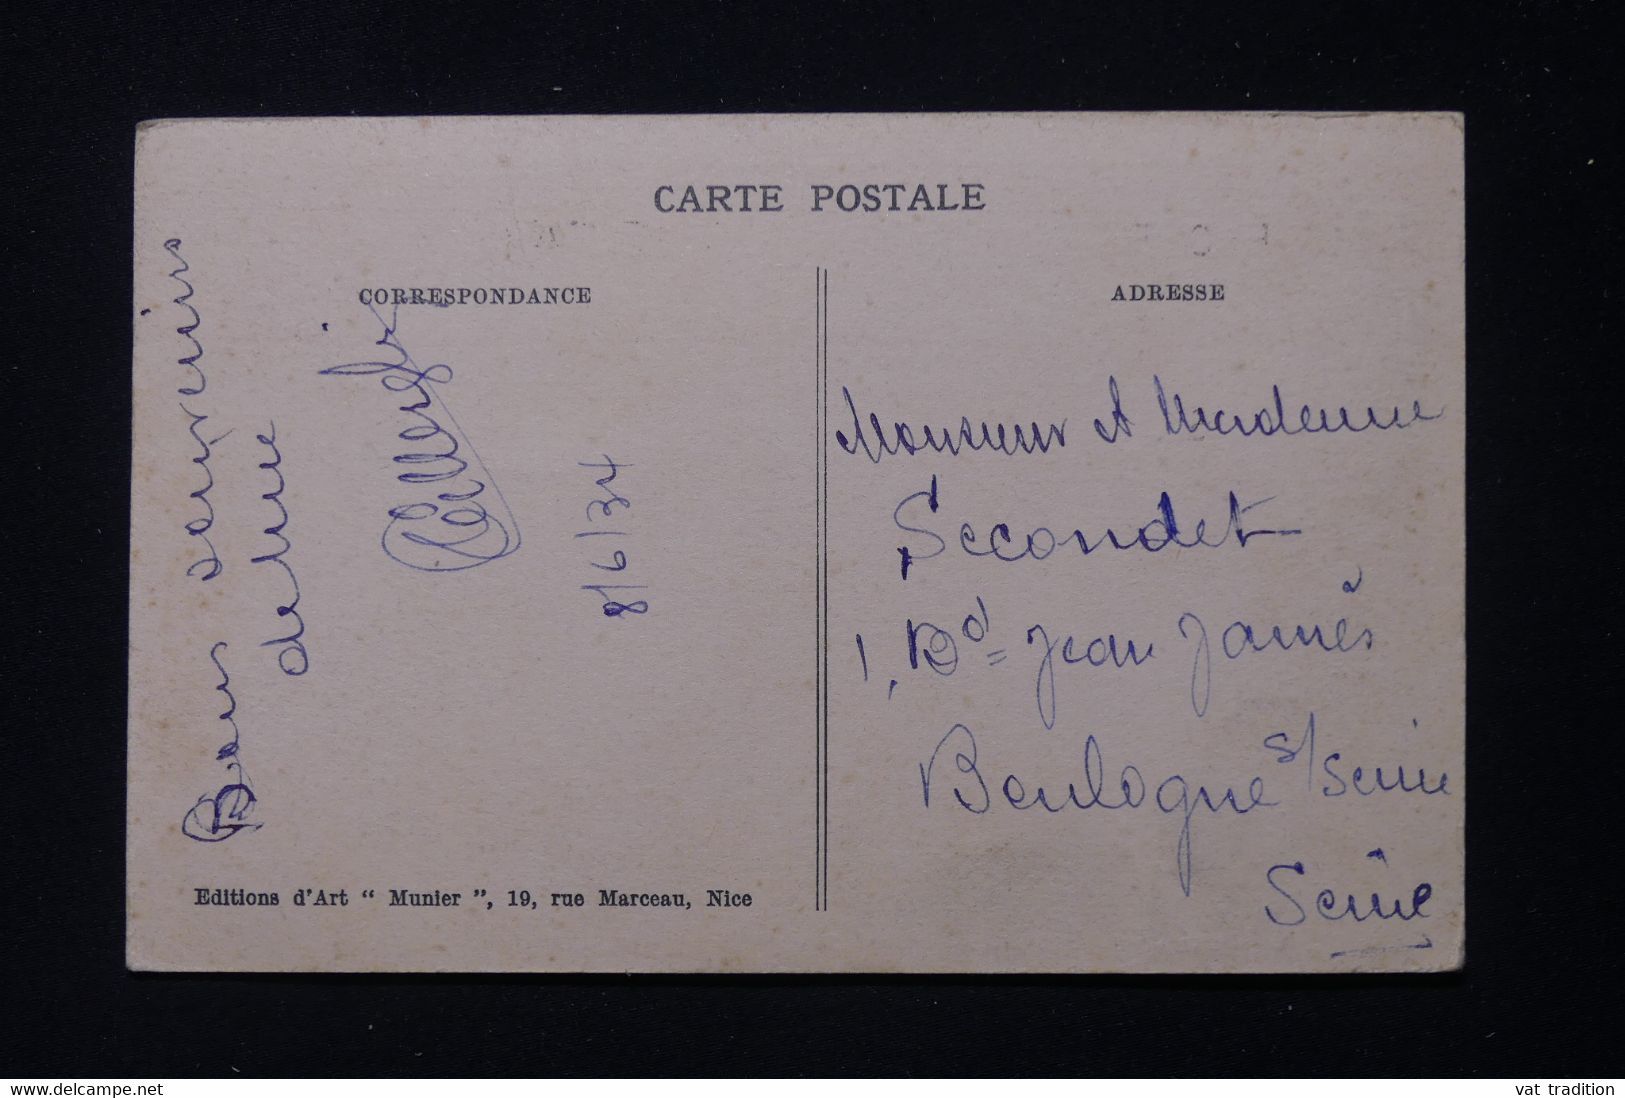 CARTE POSTALE
CORRESPONDANCE
ADRESSE
Bons souvenirs
de Nice
8/6/34
Monsieur et Madame
Secondet
1, Bd Jean Jaurès
Boulogne s/Seine
Seine
Editions d'Art “ Munier ”, 19, rue Marceau, Nice
www.delcampe.net
vat_tradition